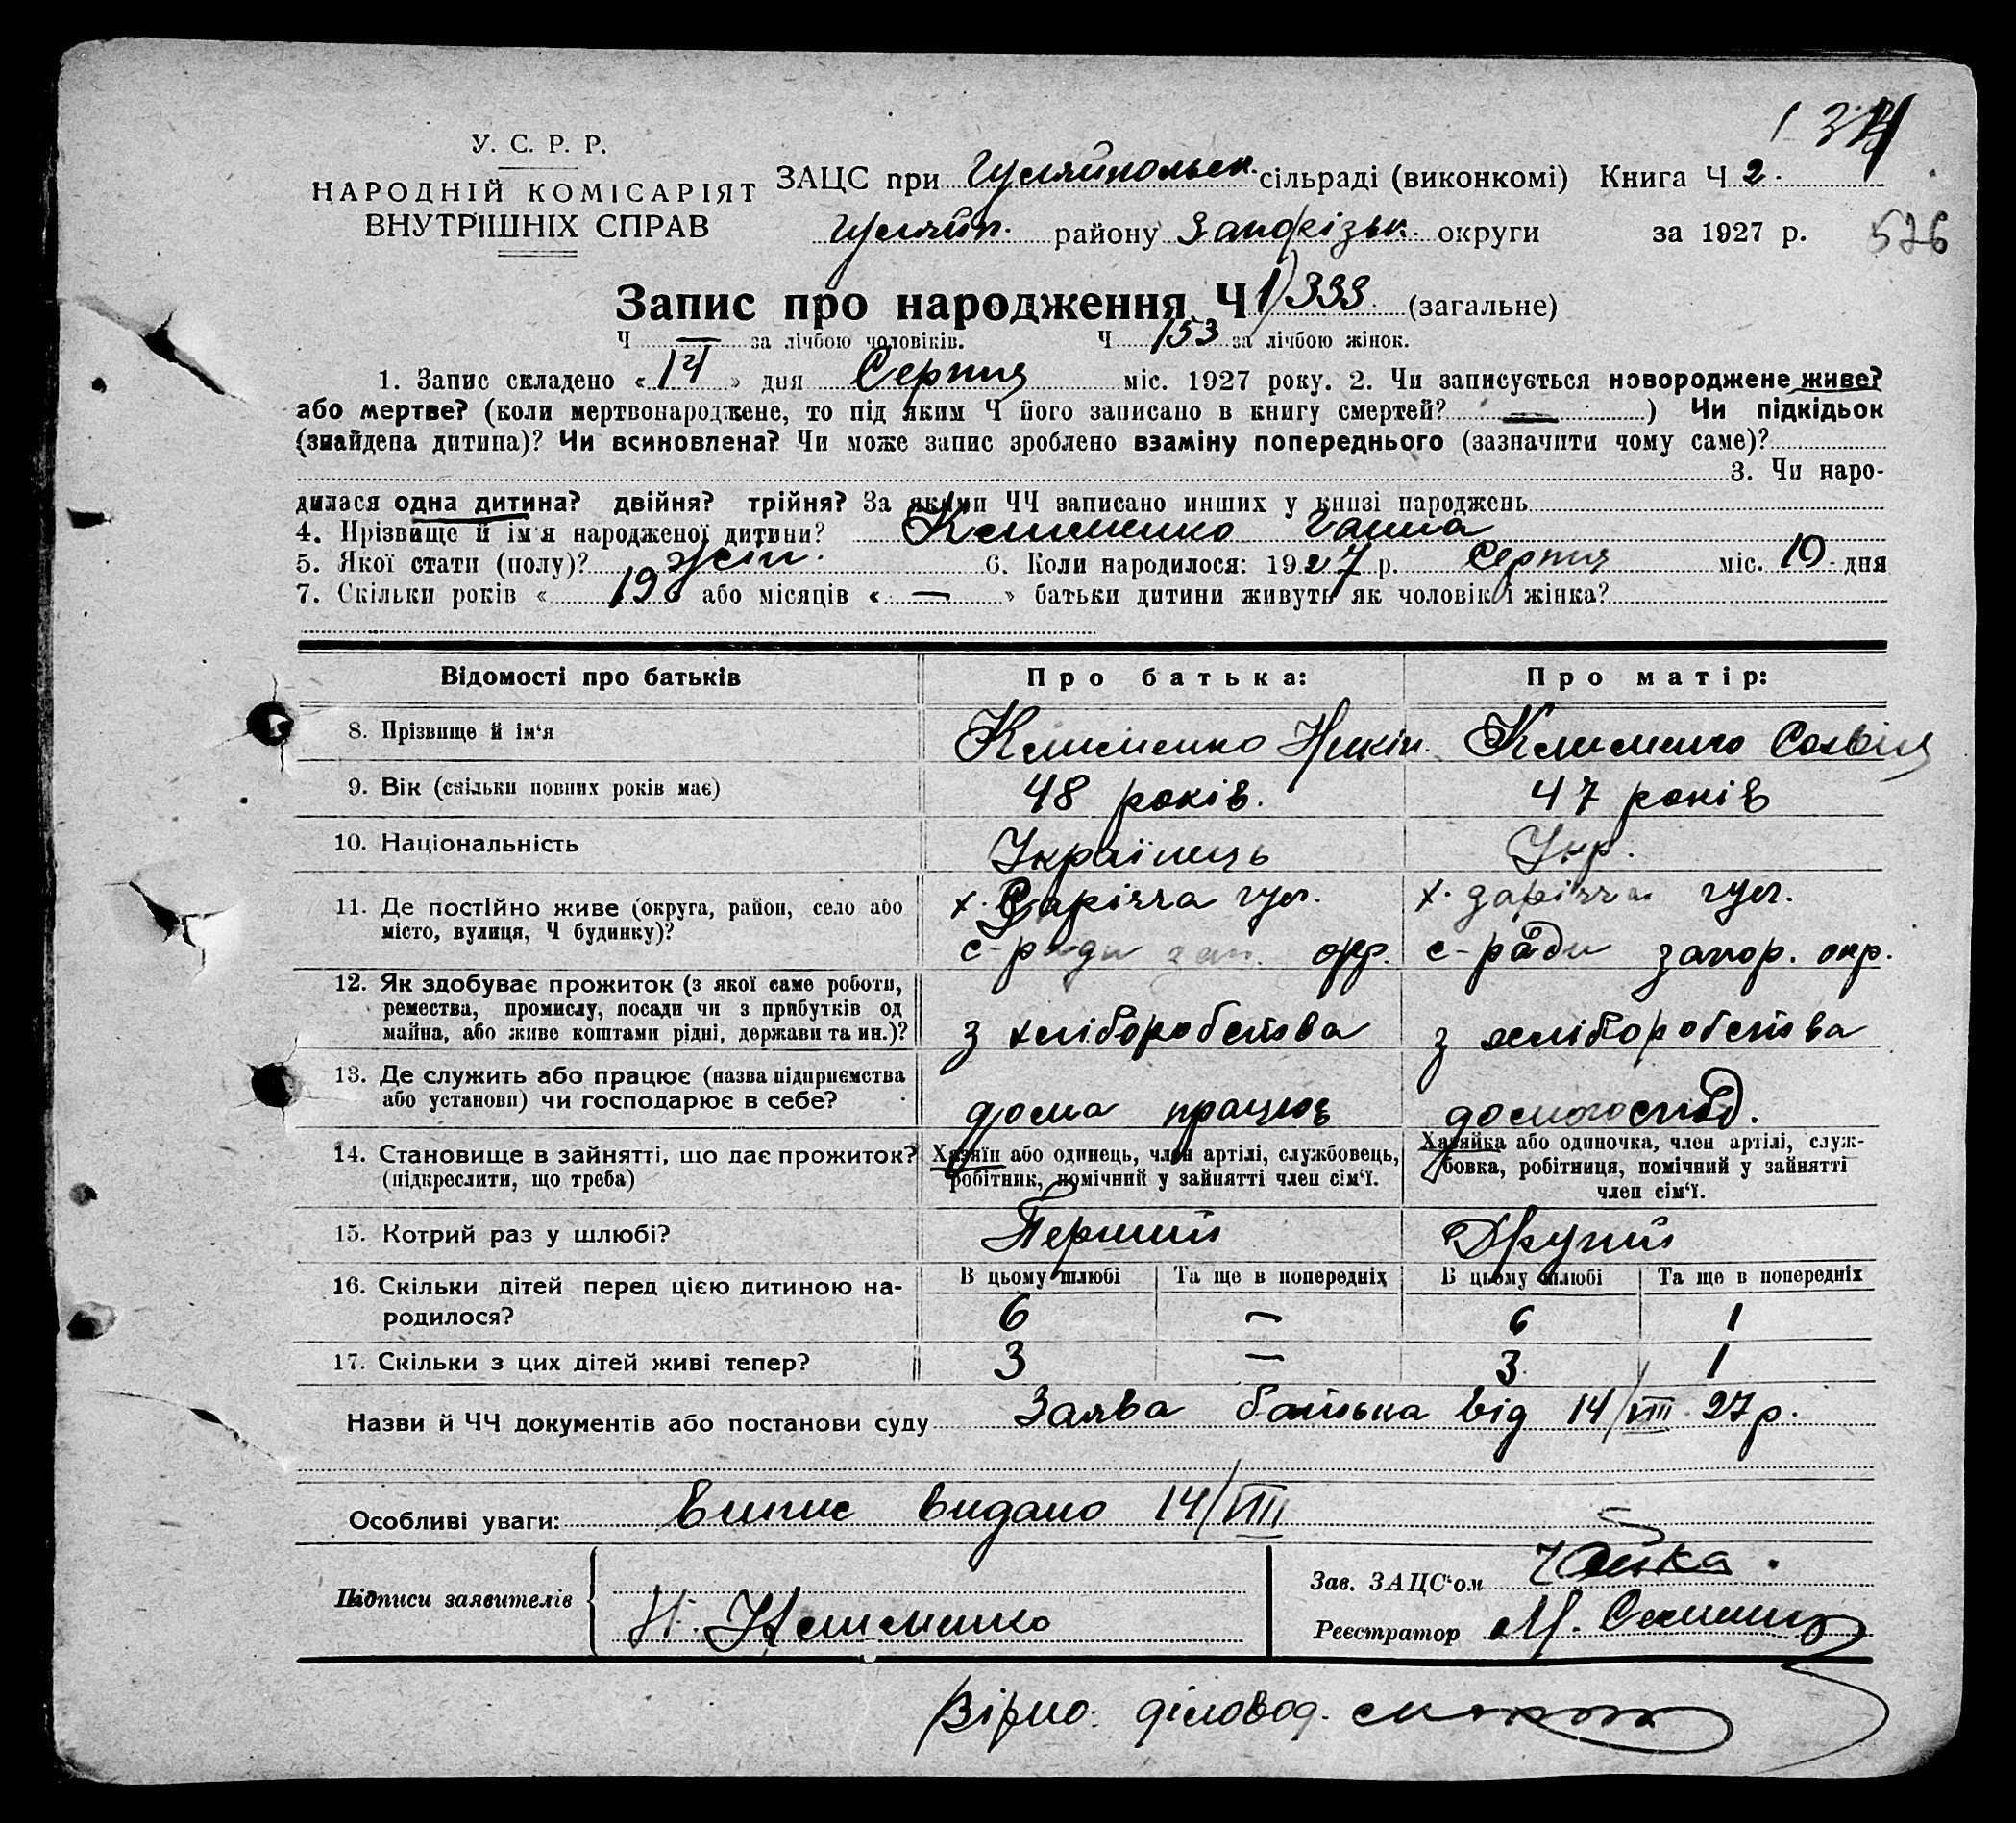 У. С. Р. Р.
НАРОДНІЙ КОМІСАРІЯТ
ВНУТРІШНІХ СПРАВ
ЗАЦС при Гуляйпольск. сільраді (виконкомі) Книга Ч 2.
Гуляйп. району Запорізьк. округи за 1927 р. 526
Запис про народження Ч 1/333 (загальне)
Ч — за лічбою чоловіків. Ч 153 за лічбою жінок.
1. Запис складено « 14 » дня Серпня міс. 1927 року. 2. Чи записується новороджене живе?
або мертве? (коли мертвонароджене, то під яким Ч його записано в книгу смертей? — ) Чи підкідьок
(знайдена дитина)? Чи всиновлена? Чи може запис зроблено взаміну попереднього (зазначити чому саме)?
3. Чи наро-
дилася одна дитина? двійня? трійня? За якими ЧЧ записано инших у книзі народжень
4. Прізвище й ім'я народженої дитини? Клименко Ганна
5. Якої стати (полу)? жін. 6. Коли народилося: 1927 р. Серпня міс. 10 дня
7. Скільки років « 19 або місяців « — » батьки дитини живуть як чоловік і жінка?
Відомості про батьків Про батька: Про матір:
8. Прізвище й ім'я Клименко Никін. Клименко
9. Вік (скільки повних років має) 48 років. 47 років
10. Національність Українець Укр.
11. Де постійно живе (округа, район, село або
місто, вулиця, Ч будинку)?
х. Заріччя гул. х. заріччя гул.
с-ради зап. окр. с-ради запор. окр.
12. Як здобуває прожиток (з якої саме роботи,
ремества, промислу, посади чи з прибутків од
майна, або живе коштами рідні, держави та ин.)?
з хліборобства з хліборобства
13. Де служить або працює (назва підприємства
або установи) чи господарює в себе?
дома працює домогоспод.
14. Становище в зайнятті, що дає прожиток?
(підкреслити, що треба)
Хазяїн або одинець, член артілі, службовець,
робітник, помічний у зайнятті член сім'ї.
Хазяйка або одиночка, член артілі, служ-
бовка, робітниця, помічний у зайнятті
член сім'ї.
15. Котрий раз у шлюбі? Перший Другий
16. Скільки дітей перед цією дитиною на-
родилося?
В цьому шлюбі Та ще в попередніх В цьому шлюбі Та ще в попередніх
6 — 6 1
17. Скільки з цих дітей живі тепер? 3 — 3 1
Назви й ЧЧ документів або постанови суду Заява батька від 14/VIII 27 р.
Особливі уваги: Випис видано 14/VIII
Підписи заявителів
Н. Клименко
Зав. ЗАЦС'ом Чайка.
Реєстратор М.
Вірно: діловод.